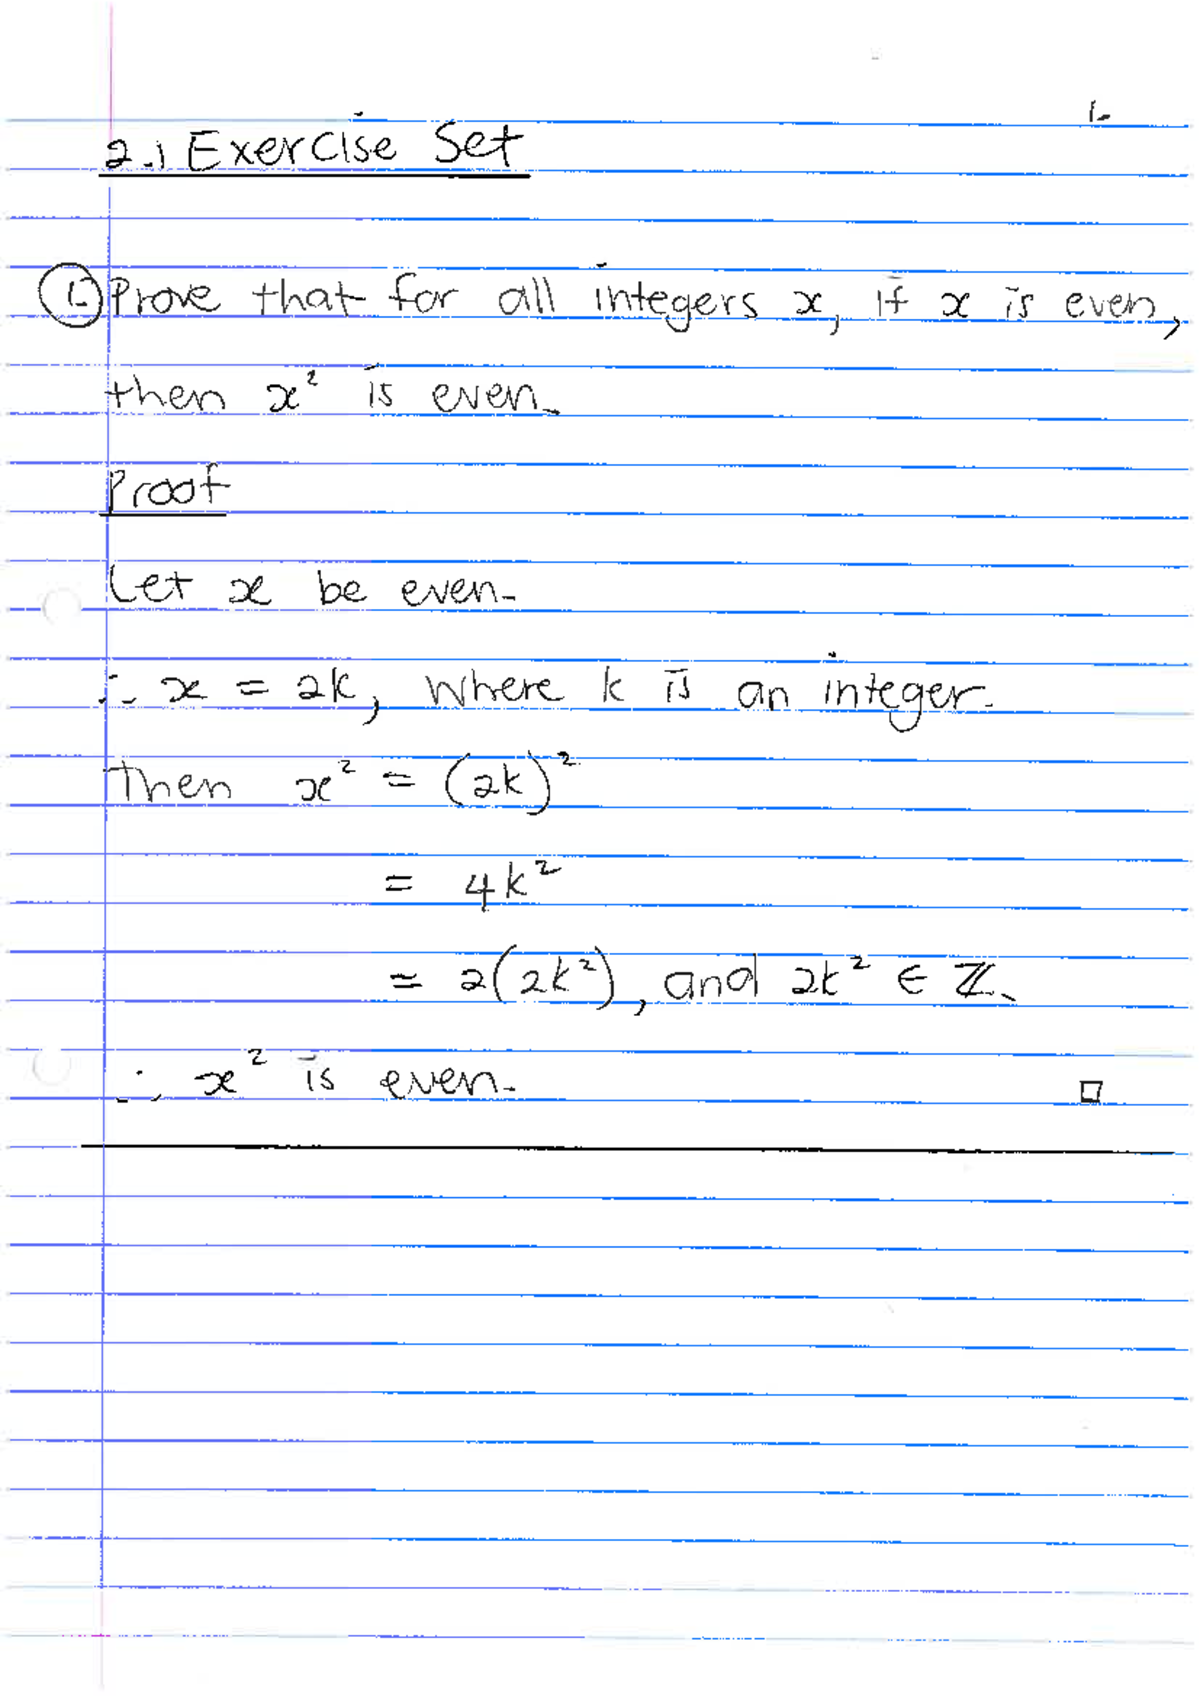 1.
2.1 Exercise Set
① Prove that for all integers x, if x is even,
then x² is even.
Proof
Let x be even.
∴ x = 2k, where k is an integer.
Then x² = (2k)²
= 4k²
= 2(2k²), and 2k² ∈ ℤ.
∴ x² is even. □